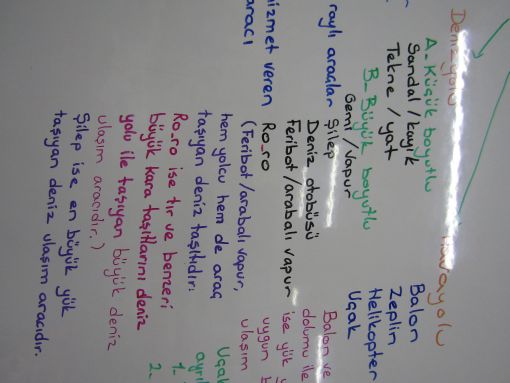 Denizyolu
A- Küçük boyutlu
Sandal / kayık
Tekne / yat
B- Büyük boyutlu
Gemi / vapur
Şilep
Deniz otobüsü
Feribot / arabalı vapur
Ro-ro
(Feribot / arabalı vapur,
hem yolcu hem de araç
taşıyan deniz taşıtıdır.
Ro-ro ise tır ve benzeri
büyük kara taşıtlarını deniz
yolu ile taşıyan büyük deniz
ulaşım aracıdır.)
Şilep ise en büyük yük
taşıyan deniz ulaşım aracıdır.
Balon
Zeplin
Helikopter
Uçak
Balon ve
dolumu ile
ise yük
uygun
ulaşım
1-
2-
raylı araçlar
hizmet veren
aracı